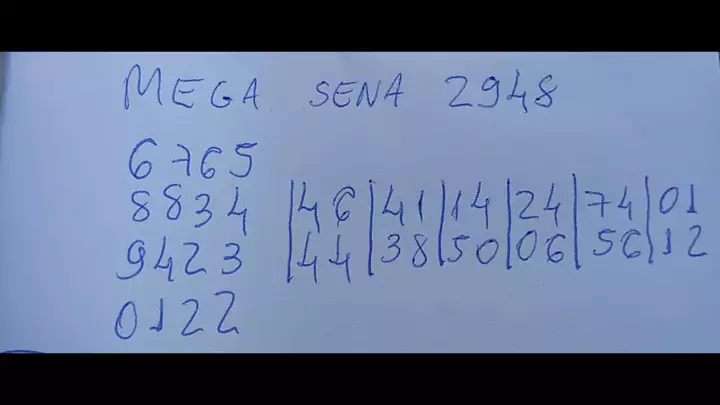 MEGA SENA 2948
6765
8834 |46|41|14|24|74|01
9423 |44|38|50|06|56|12
0122